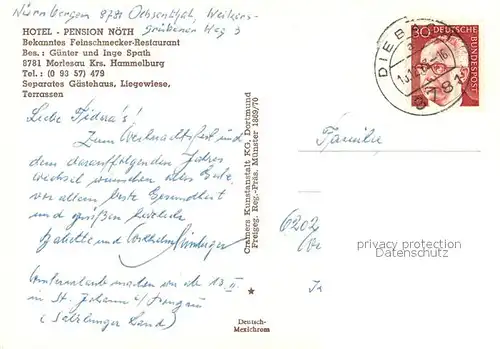 Nürnbergen 8781 Ochsenthal, Weikers-
Grubener Weg 3
HOTEL - PENSION NÖTH
Bekanntes Feinschmecker-Restaurant
Bes.: Günter und Inge Spath
8781 Morlesau Krs. Hammelburg
Tel.: (0 93 57) 479
Separates Gästehaus, Liegewiese,
Terrassen
Liebe
Zum Weihnachtsfest und
dem darauffolgenden Jahres
wechsel wünschen alles Gute
vor allem beste Gesundheit
und grüßen herzlich
Babette und
Winterurlaub machen wir ab 13.II
in St. Johann / Pongau
(Salzburger Land)
Cramers Kunstanstalt KG, Dortmund
Freigeg. Reg.-Präs. Münster 1869/70
Deutsch-
Mexichrom
DIEB
8781
30 DEUTSCHE
BUNDESPOST
Familie
6202
privacy protection
Datenschutz